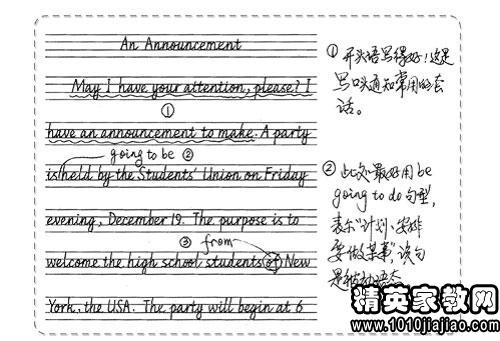 An Announcement
May I have your attention, please? I
①
have an announcement to make. A party
going to be ②
is held by the Students' Union on Friday
evening, December 19. The purpose is to
③ from
welcome the high school students of New
York, the USA. The party will begin at 6
① 开头语写得好!这是
写口头通知常用的套
话。
② 此处最好用be
going to do句型,
表示“计划、安排
要做某事”该句
是被动语态
精英家教网
www.1010jiajiao.com